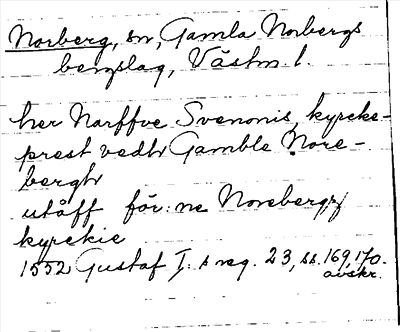 Norberg, sn, Gamla Norbergs
bergslag, Västm. l.
her Narffve Svenonis kyrcke-
prest vedh Gamble Nore-
bergh
utåff för:ne Norebergz
kyrckie
1552 Gustaf I:s reg. 23, ss. 169, 170.
avskr.